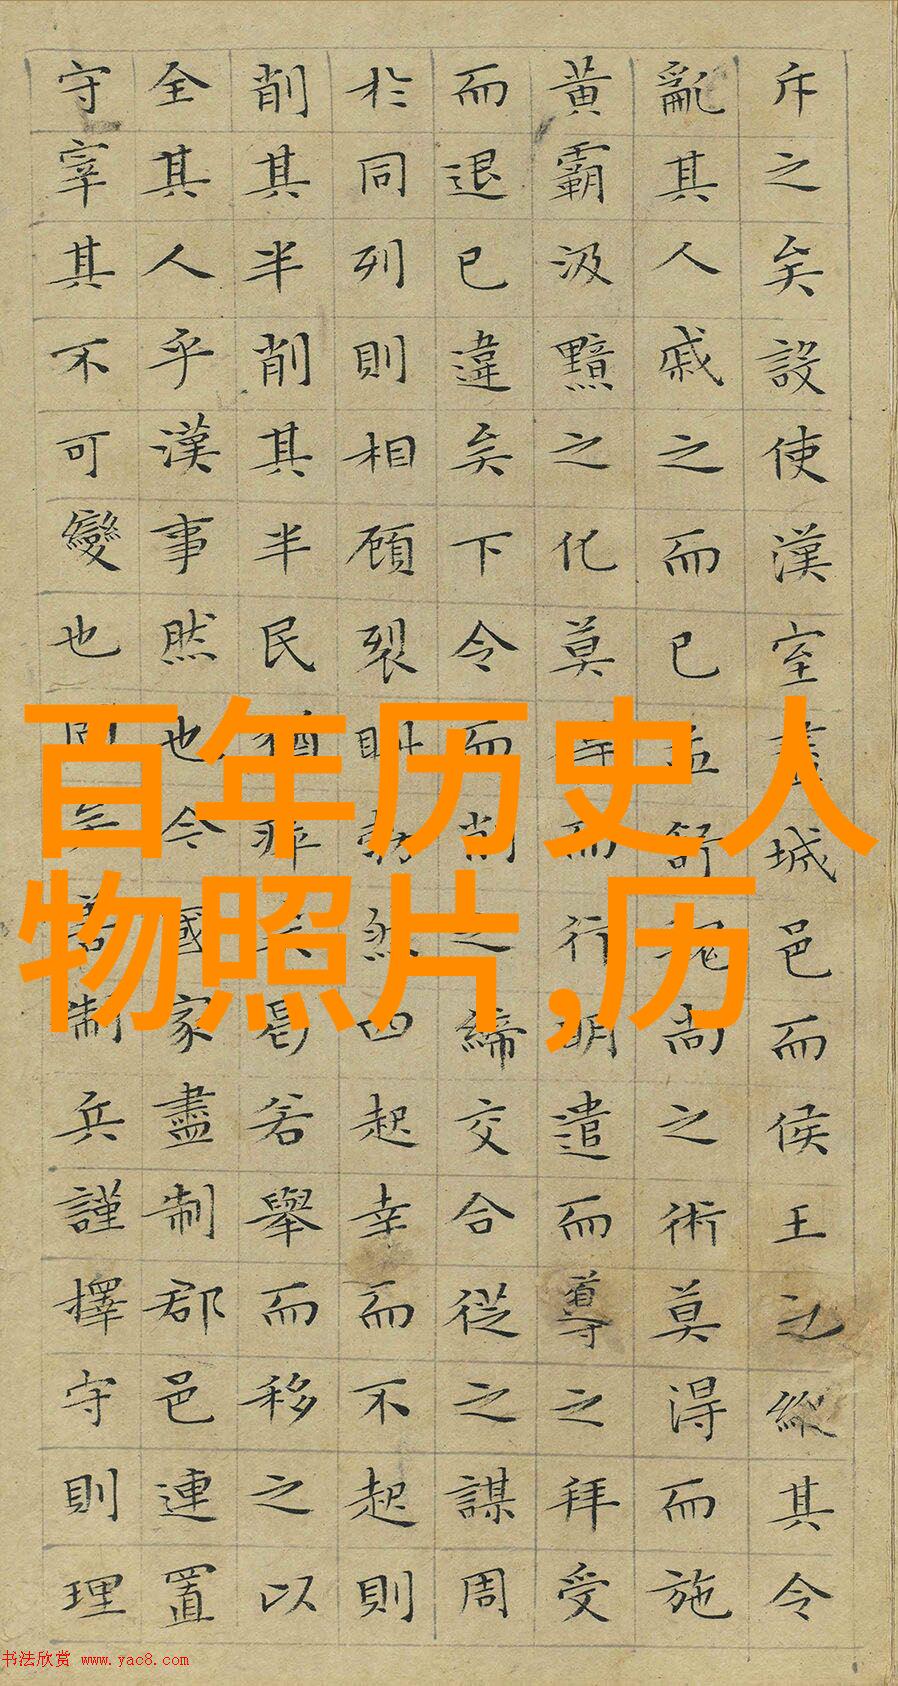 斥之矣設使漢室盡城邑而侯王之縱其令
亂其人戚之而已孟舒魏尚之術莫得而施
黃霸汲黯之化莫得而行明遣而導之拜受
而退已違矣下令而削之締交合從之謀周
於同列則相顧裂眥勃然四起幸而不起則
削其半削其半民猶瘁矣曷若舉而移之以
全其人乎漢事然也今國家盡制郡邑連置
守宰其不可變也固矣善制兵謹擇守則理
百年历史人
物照片,历
书法欣赏 www.yac8.com